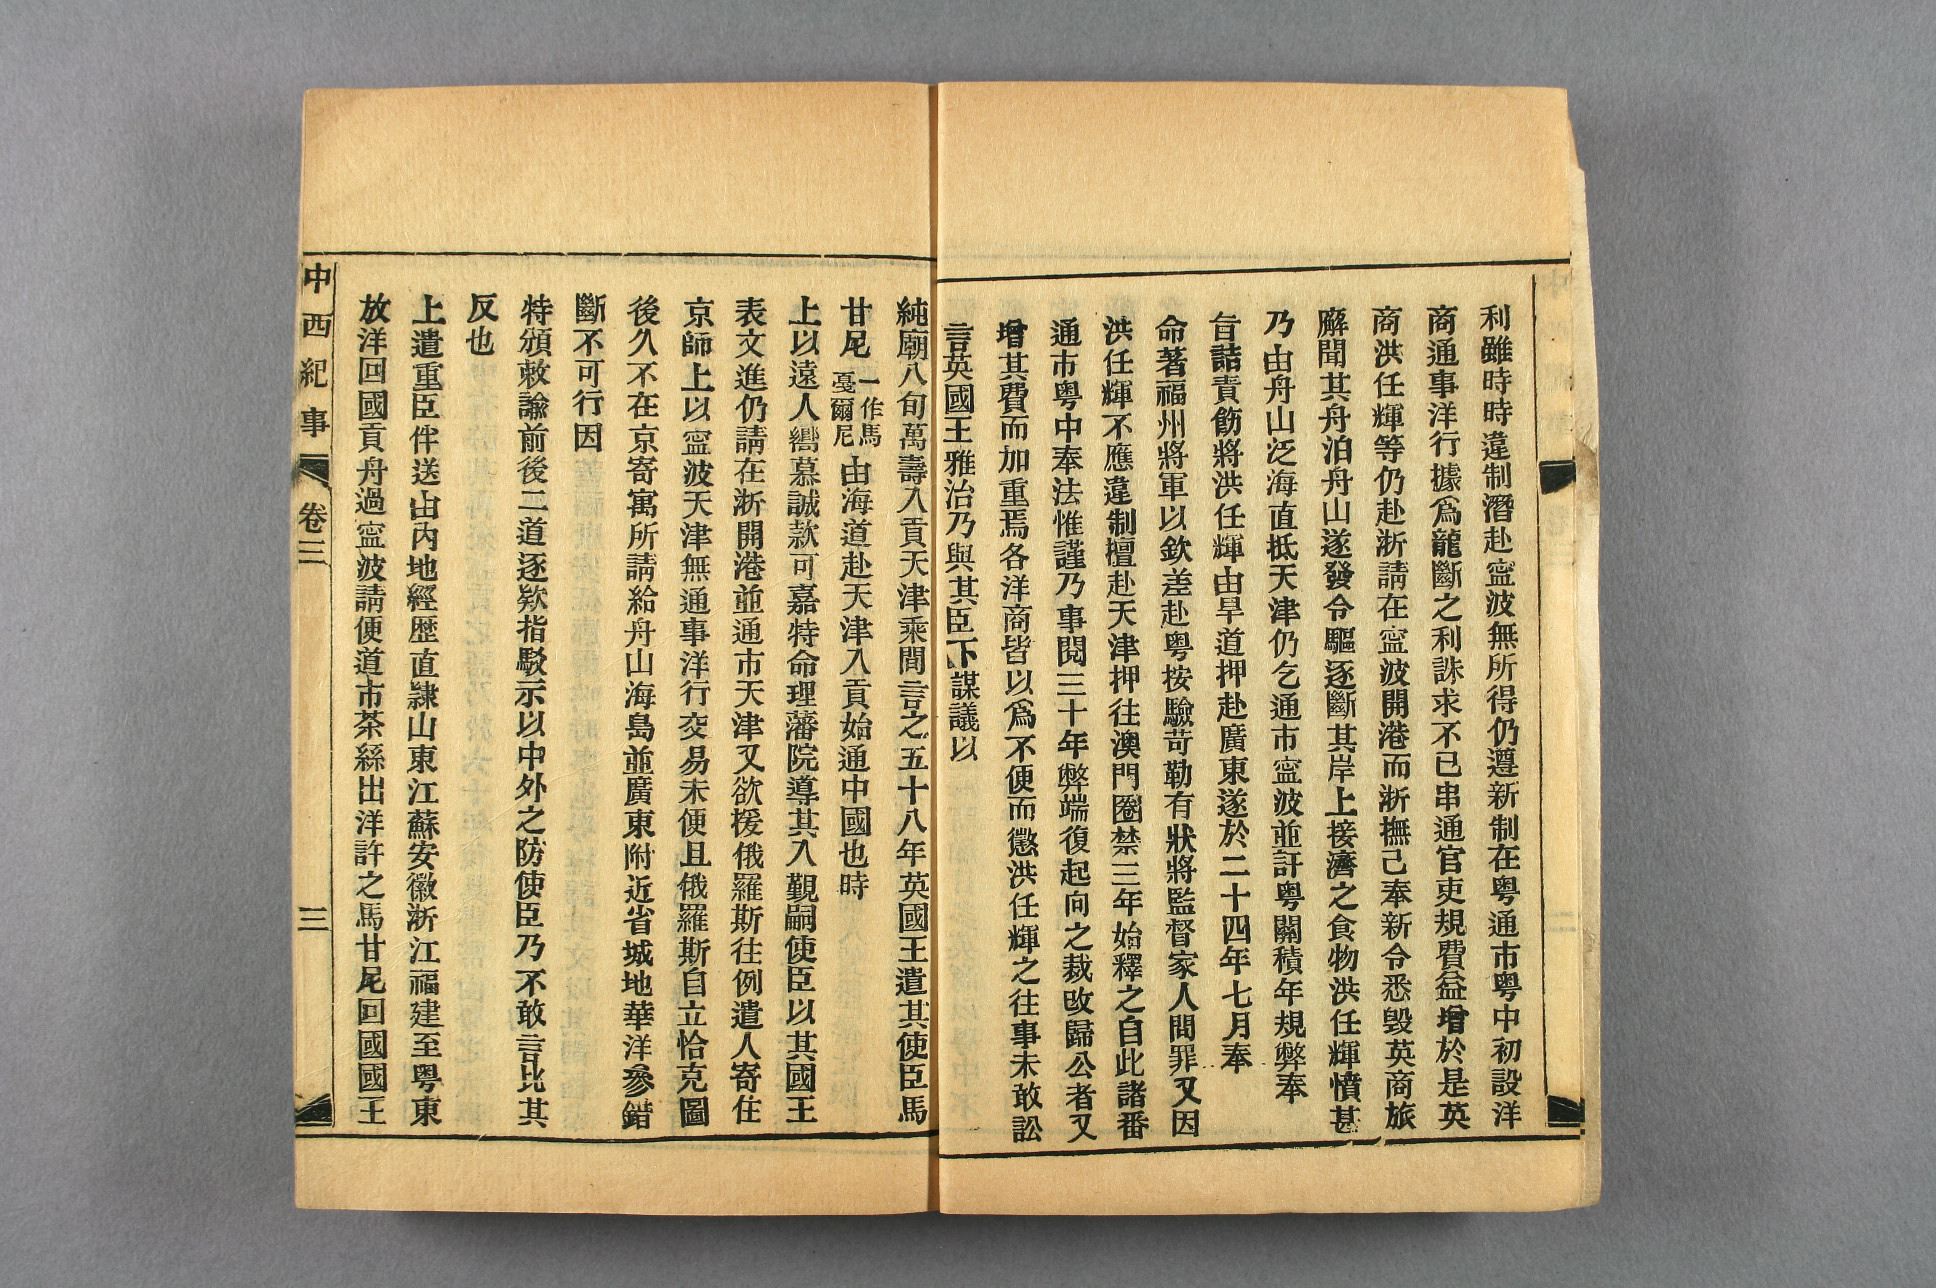 利雖時時違制潛赴寍波無所得仍遵新制在粤通市粤中初設洋
商通事洋行據爲龍斷之利誅求不已串通官吏規費益增於是英
商洪任輝等仍赴浙請在寍波開港而浙撫已奉新令悉毀英商旅
廨聞其舟泊舟山遂發令驅逐斷其岸上接濟之食物洪任輝憤甚
乃由舟山泛海直抵天津仍乞通市寍波並訐粤關積年規弊奉
旨詰責飭將洪任輝由旱道押赴廣東遂於二十四年七月奉
命著福州將軍以欽差赴粤按驗苛勒有狀將監督家人問罪又因
洪任輝不應違制擅赴天津押往澳門圈禁三年始釋之自此諸番
通市粤中奉法惟謹乃事閱三十年弊端復起向之裁改歸公者又
增其費而加重焉各洋商皆以爲不便而懲洪任輝之往事未敢訟
言英國王雅治乃與其臣下謀議以
純廟八旬萬壽入貢天津乘間言之五十八年英國王遣其使臣馬
甘尼一作馬戞爾尼由海道赴天津入貢始通中國也時
上以遠人嚮慕誠款可嘉特命理藩院導其入覲嗣使臣以其國王
表文進仍請在浙開港並通市天津又欲援俄羅斯往例遣人寄住
京師上以寍波天津無通事洋行交易未便且俄羅斯自立恰克圖
後久不在京寄寓所請給舟山海島並廣東附近省城地華洋參錯
斷不可行因
特頒敕諭前後二道逐欵指駁示以中外之防使臣乃不敢言比其
反也
上遣重臣伴送由內地經歷直隸山東江蘇安徽浙江福建至粤東
放洋回國貢舟過寍波請便道市茶絲出洋許之馬甘尼回國國王
中西紀事
卷三
三